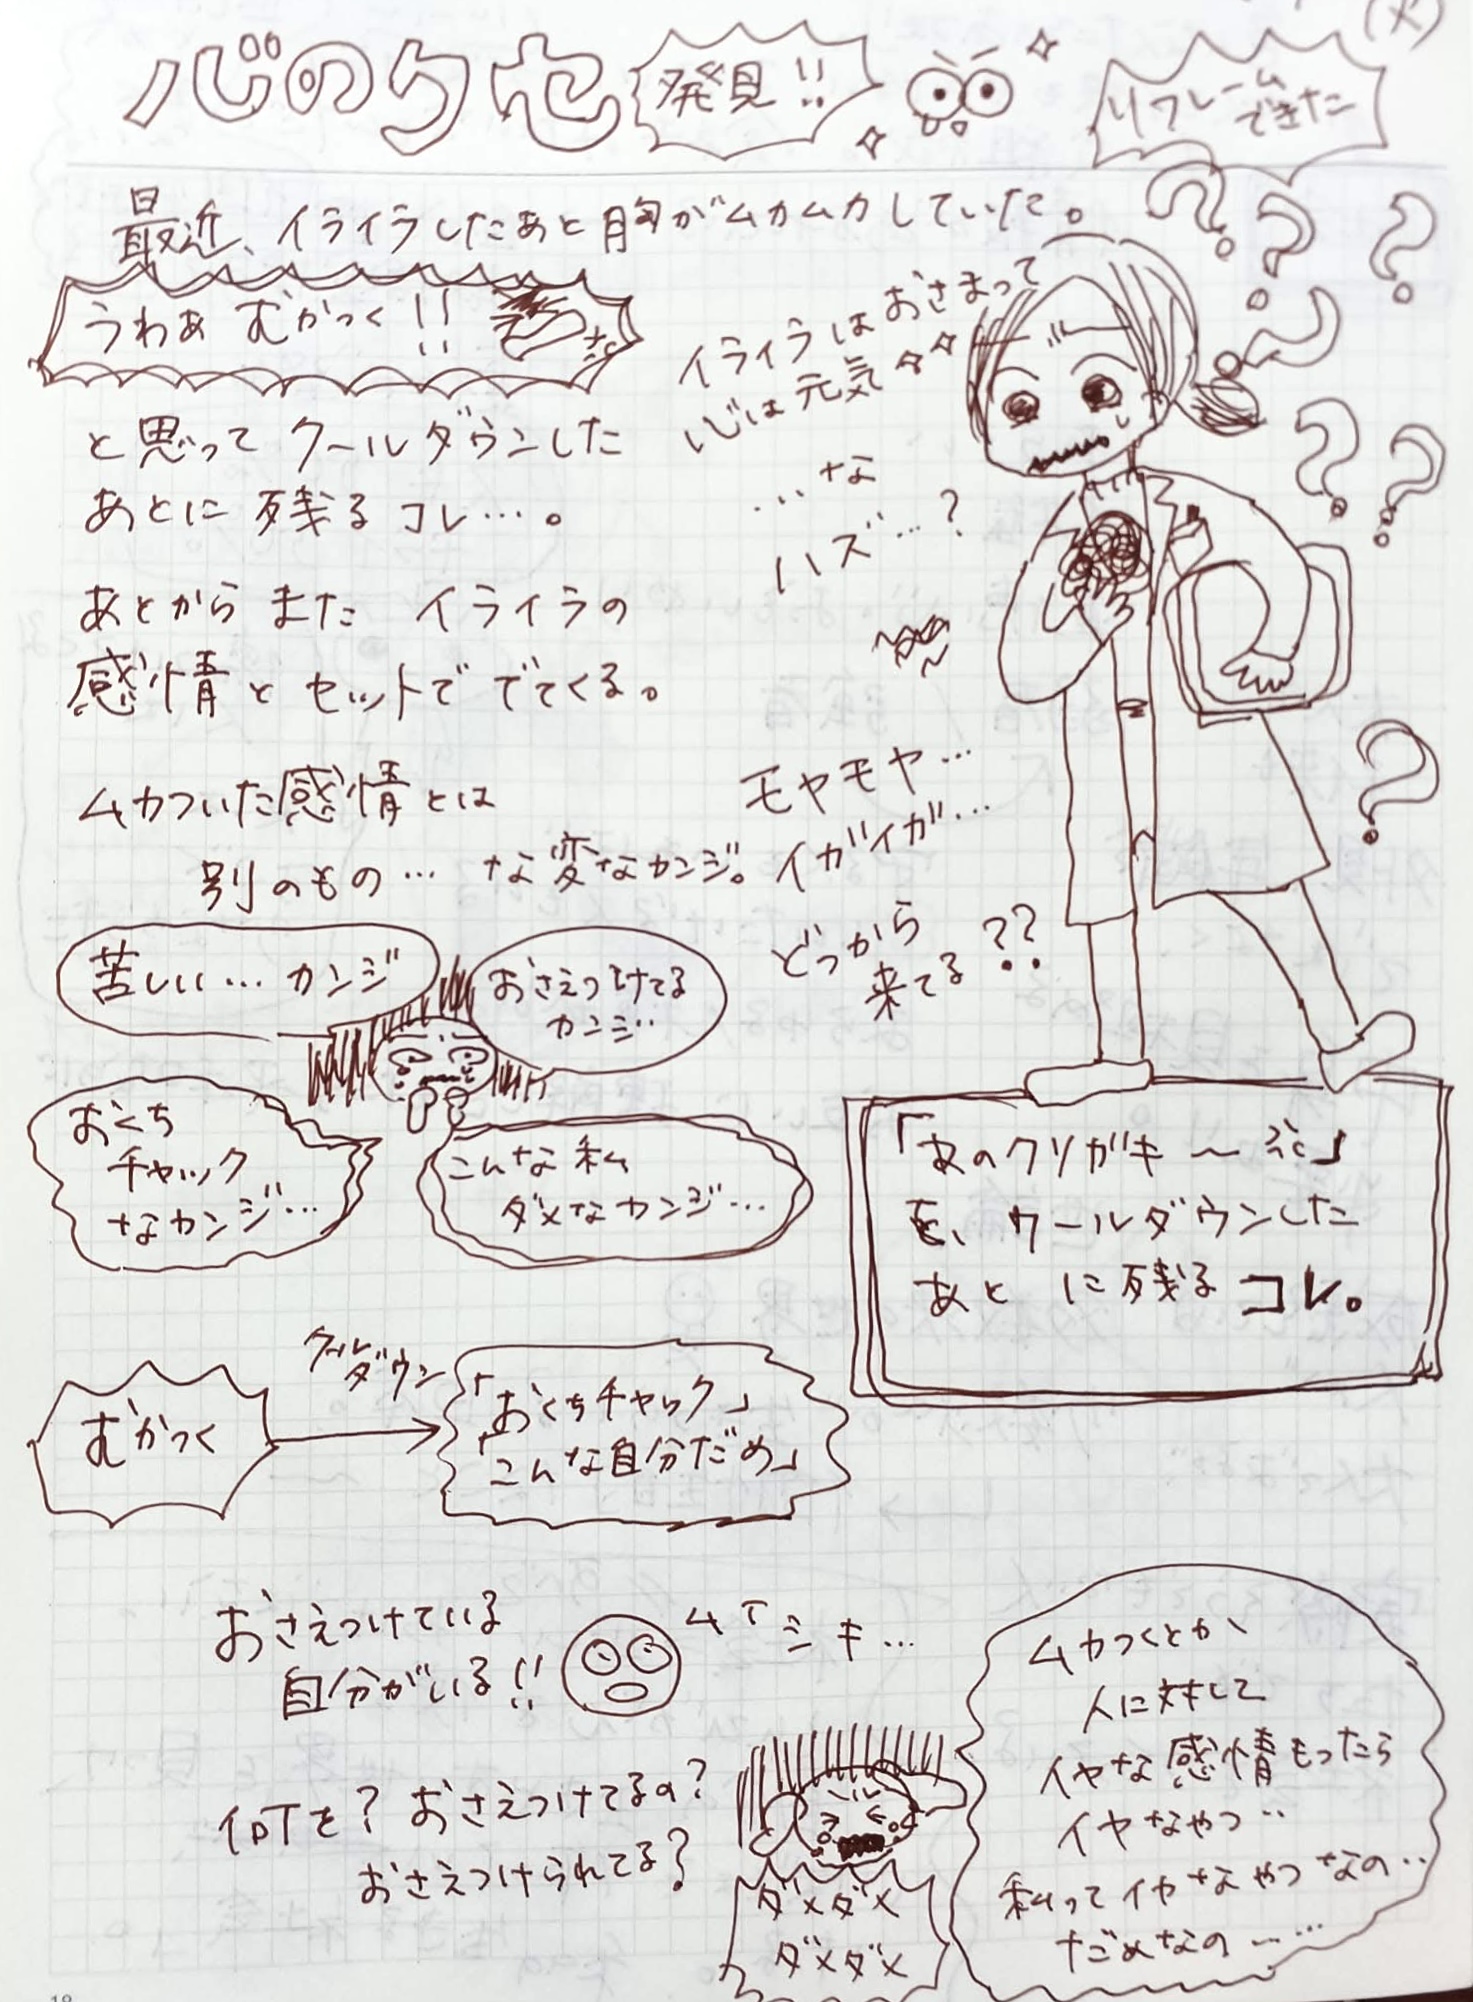 (火)
心のクセ 発見!!
リフレーム
できた
最近、イライラしたあと胸がムカムカしていた。
うわぁ むかつく!!
と思って クールダウンした
あとに 残る コレ…。
あとから また イライラの
感情と セットで でてくる。
ムカついた感情とは
別のもの… な変なカンジ。
イライラは おさまって
心は 元気
‥な
ハズ…?
モヤモヤ…
イガイガ…
どっから
来てる??
苦しい… カンジ
おさえつけてる
カンジ‥
おくち
チャック
なカンジ…
こんな 私
ダメなカンジ…
「あのクソガキ〜」
を、クールダウンした
あと に 残る コレ。
むかつく
クールダウン
「おくちチャック」
「こんな自分だめ」
おさえつけている
自分がいる!!
ムイシキ…
何を? おさえつけてるの?
おさえつけられてる?
ダメダメ
ダメダメ
ムカつくとか、
人に対して
イヤな感情もったら
イヤなやつ‥
私って イヤな やつ なの‥
だめなの……
18